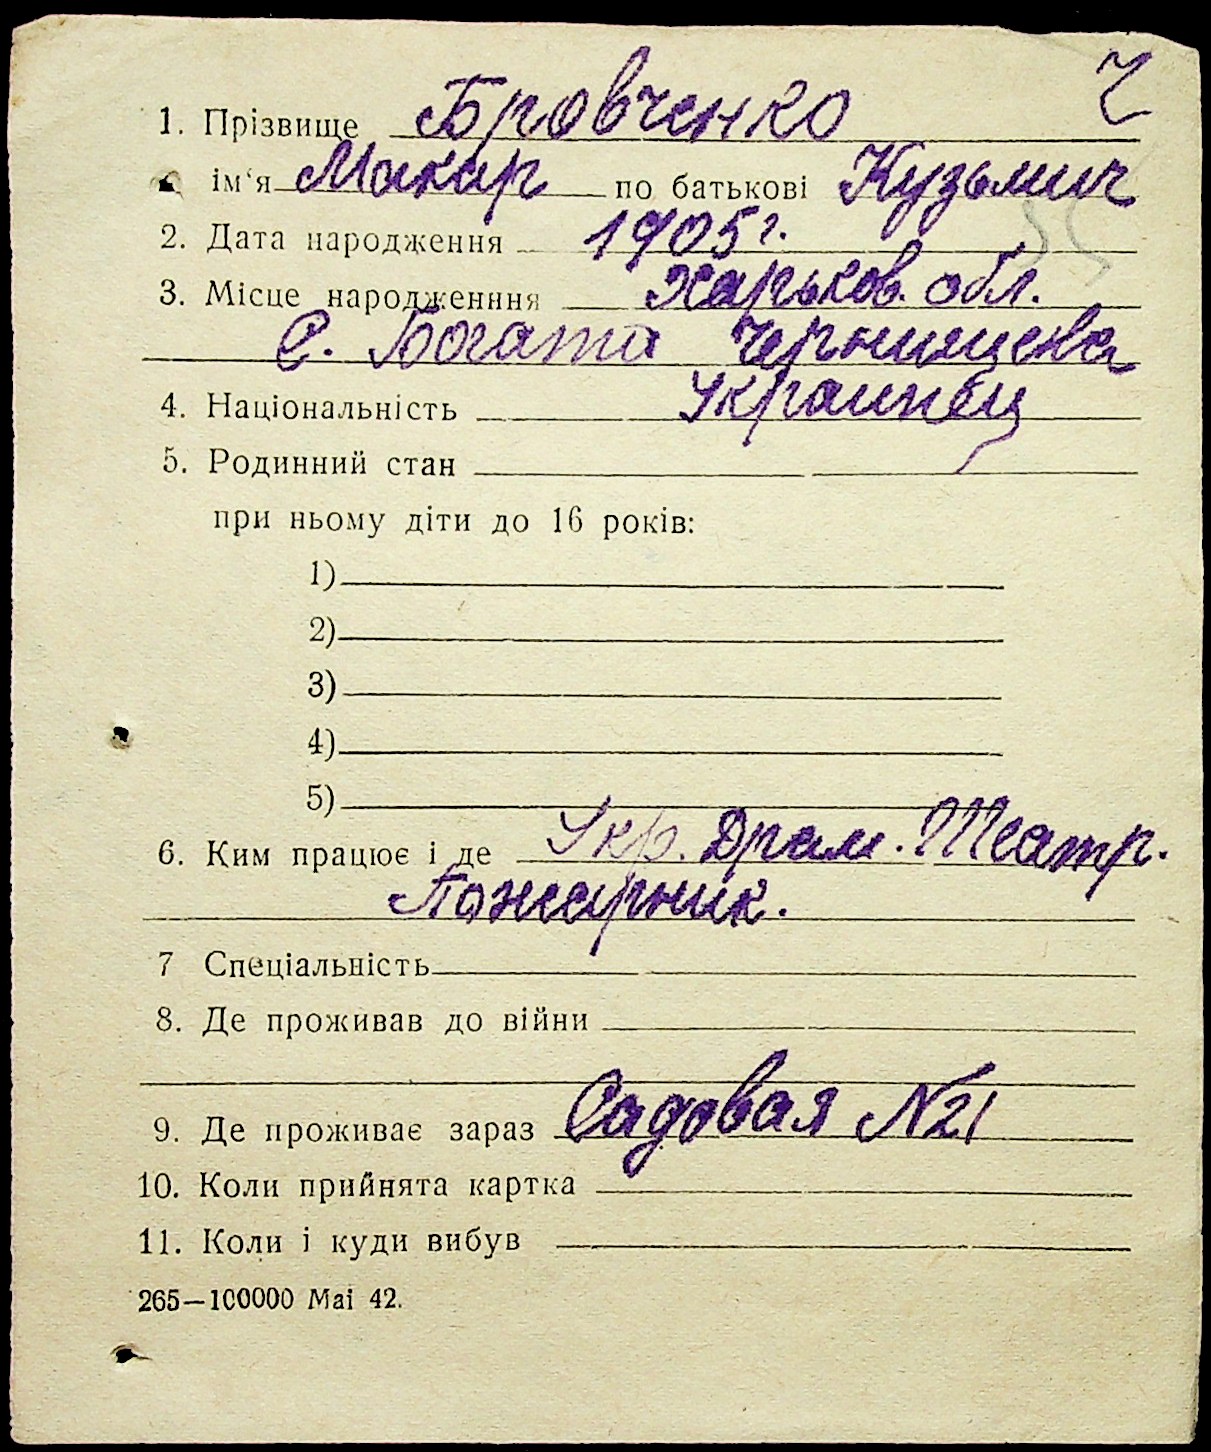 Ч
1. Прізвище Бровченко
ім'я Макар по батькові Кузьмич
2. Дата народження 1905 г.
3. Місце народженння Харьков. обл.
С. Богата Чернищева
4. Національність Украинец
5. Родинний стан
при ньому діти до 16 років:
1)
2)
3)
4)
5)
6. Ким працює і де Укр. Драм. Театр.
Пожарник.
7 Спеціальність
8. Де проживав до війни
9. Де проживає зараз Садовая № 21
10. Коли прийнята картка
11. Коли і куди вибув
265—100000 Mai 42.